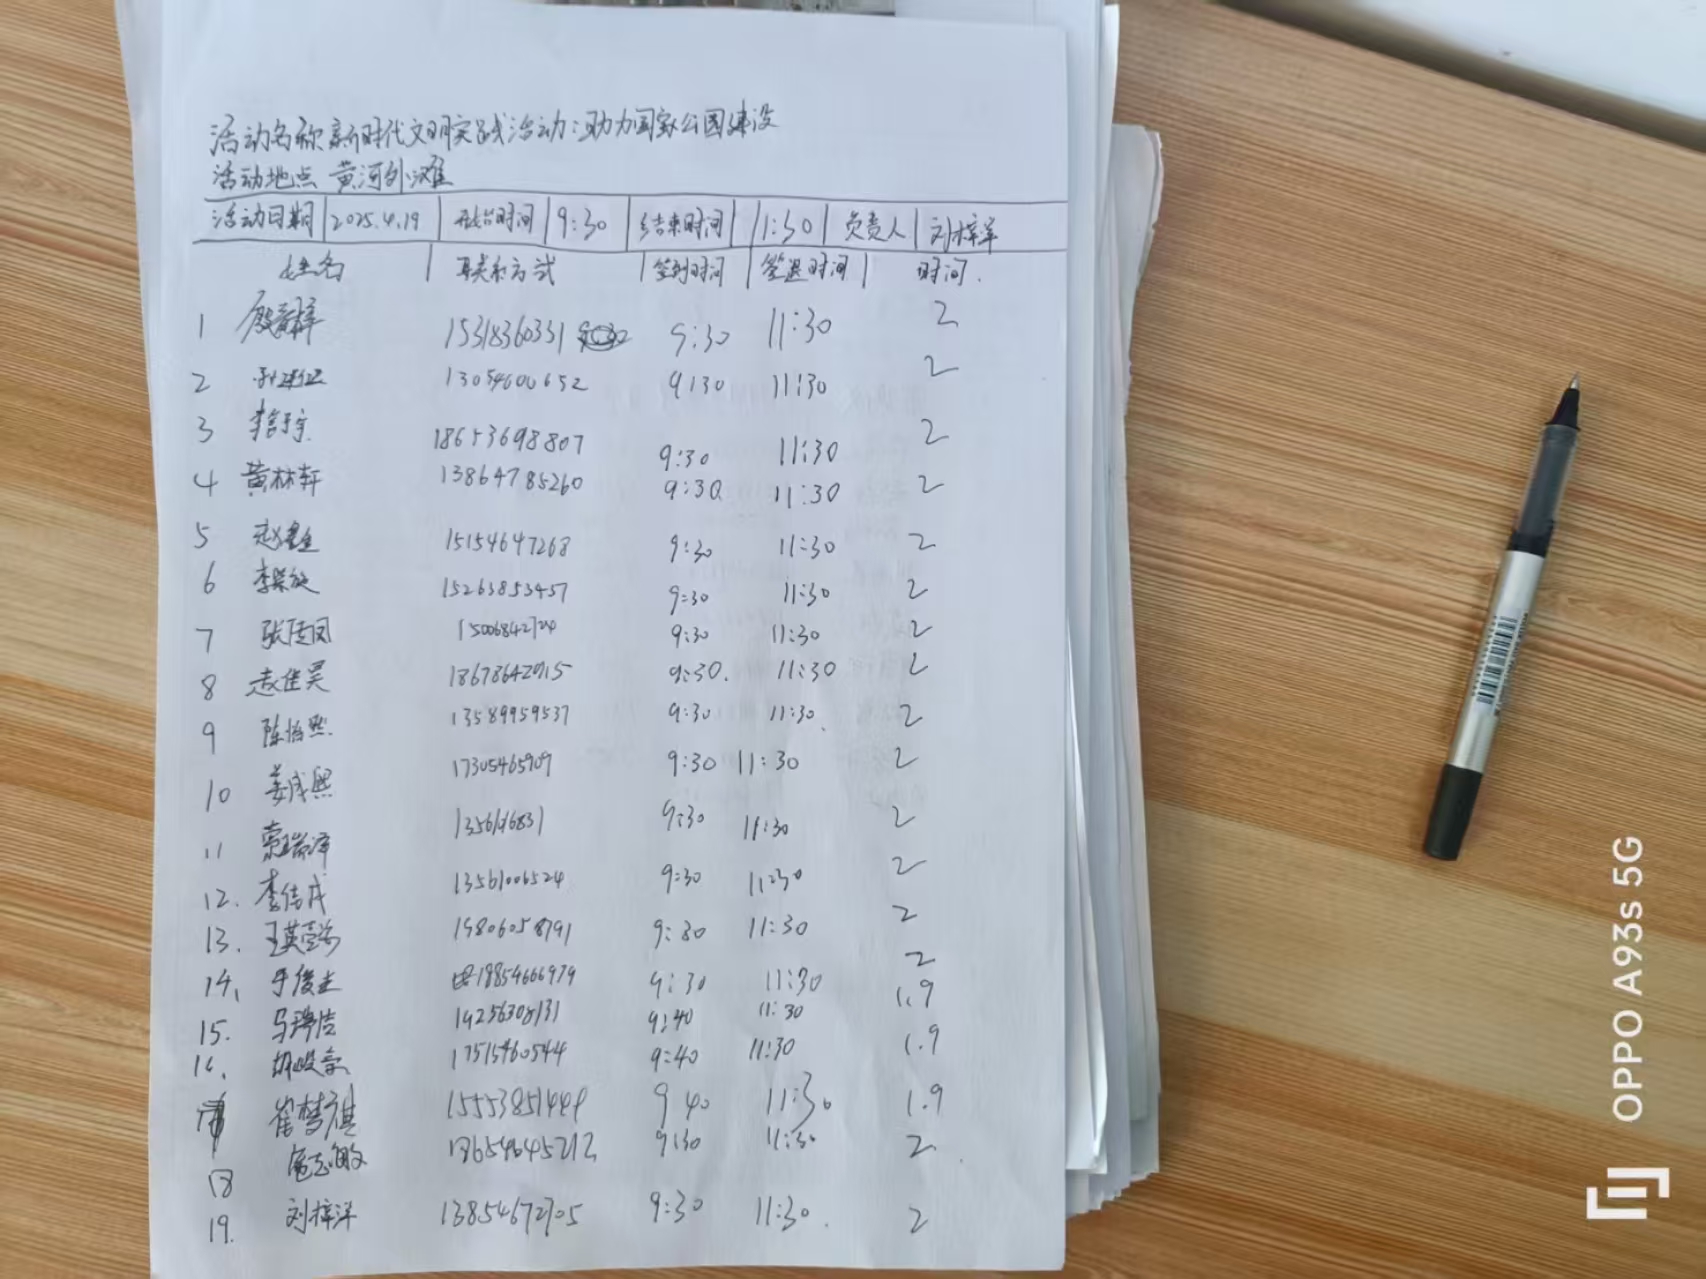 活动名称 新时代文明实践活动:助力国家公园建设
活动地点 黄河外滩
活动日期 2025.4.19 开始时间 9:30 结束时间 11:30 负责人 刘梓洋
姓名 联系方式 签到时间 签退时间 时间.
1 15318360331 9:30 11:30 2
2 13054600652 9:30 11:30 2
3 18653698807 9:30 11:30 2
4 黄林轩 13864785260 9:30 11:30 2
5 15154647268 9:30 11:30 2
6 15263853457 9:30 11:30 2
7 9:30 11:30 2
8 赵佳昊 9:30. 11:30 2
9 陈怡熙 13589959537 9:30 11:30. 2
10 姜成熙 17305465909 9:30 11:30 2
11 荣瑞泽 9:30 11:30 2
12. 李佶成 13561006524 9:30 11:30 2
13. 9:30 11:30 2
14. 于俊杰 9:30 11:30 2
15. 9:40 11:30 1.9
16. 胡峻豪 17515460544 9:40 11:30 1.9
17 崔梦祺 15553851449 9 40 11:30 1.9
18 9:30 11:30 2
19. 刘梓洋 13854672705 9:30 11:30. 2
OPPO A93s 5G